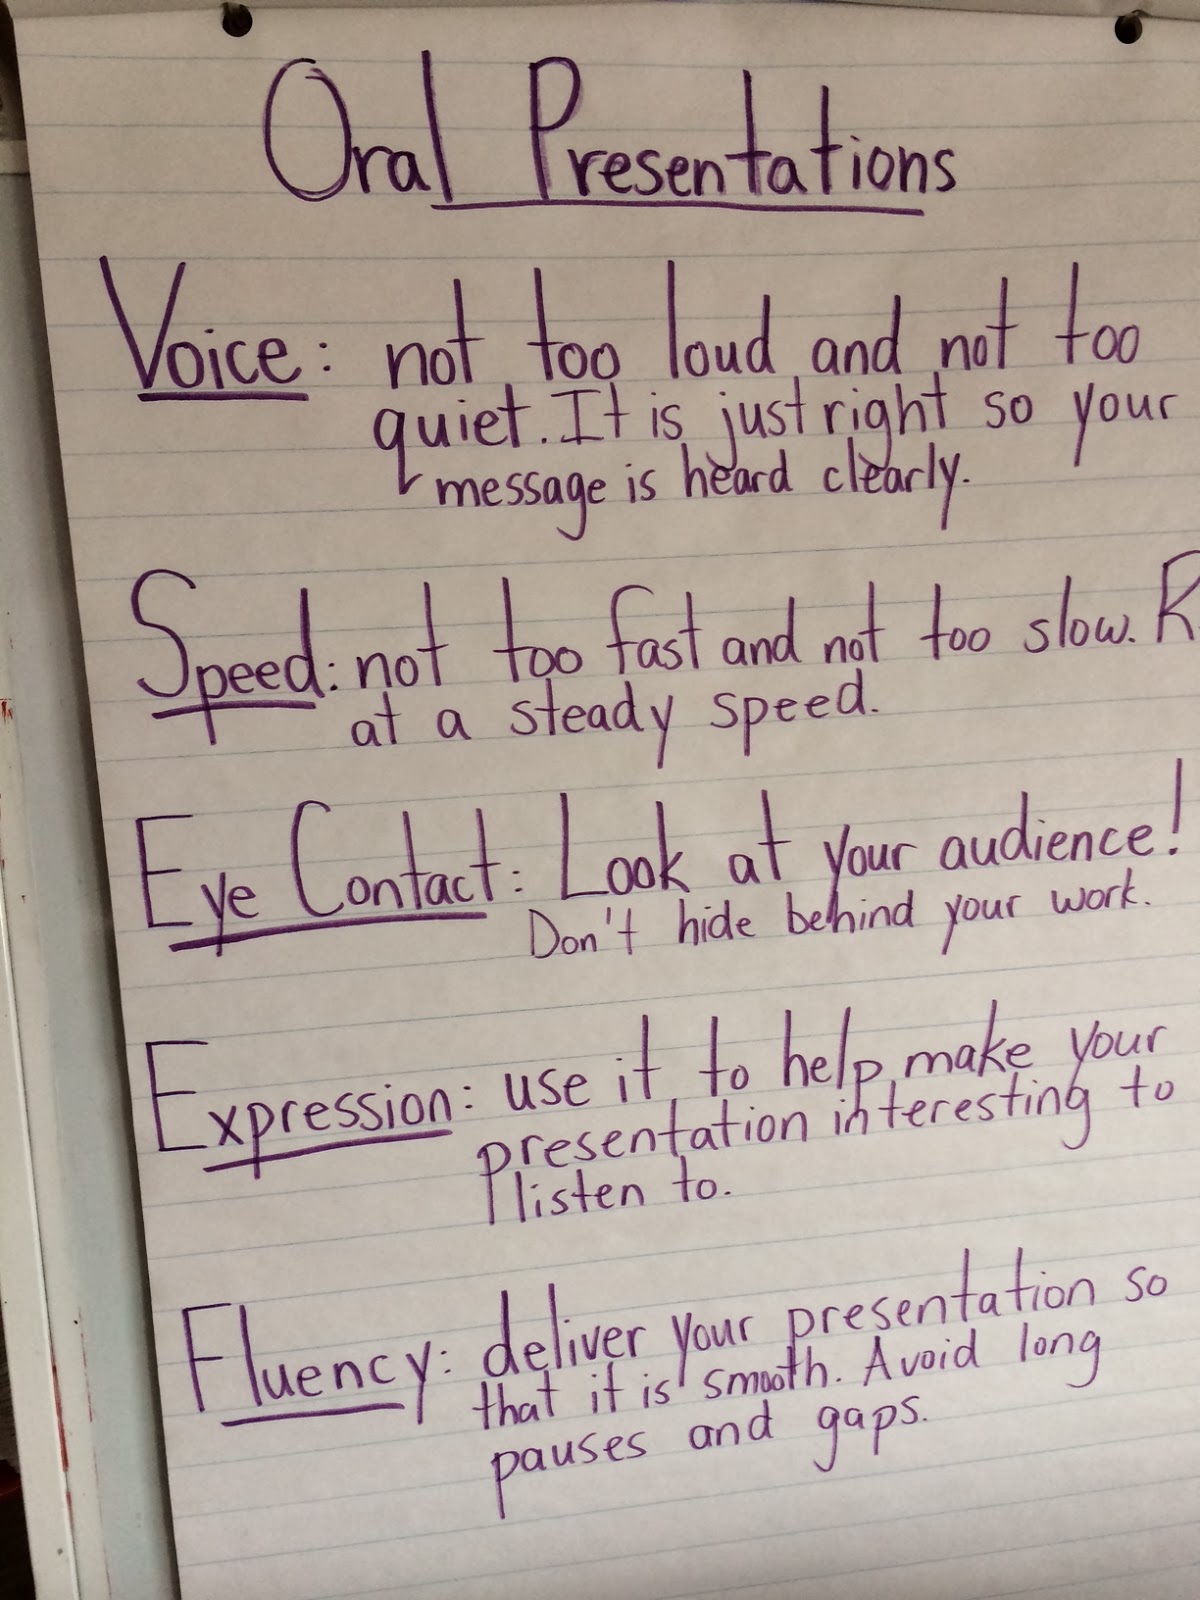 Oral Presentations
Voice: not too loud and not too
quiet. It is just right so your
message is heard clearly.
Speed: not too fast and not too slow.
at a steady speed.
Eye Contact: Look at your audience!
Don't hide behind your work.
Expression: use it to help make your
presentation interesting to
listen to.
Fluency: deliver your presentation so
that it is smooth. Avoid long
pauses and gaps.